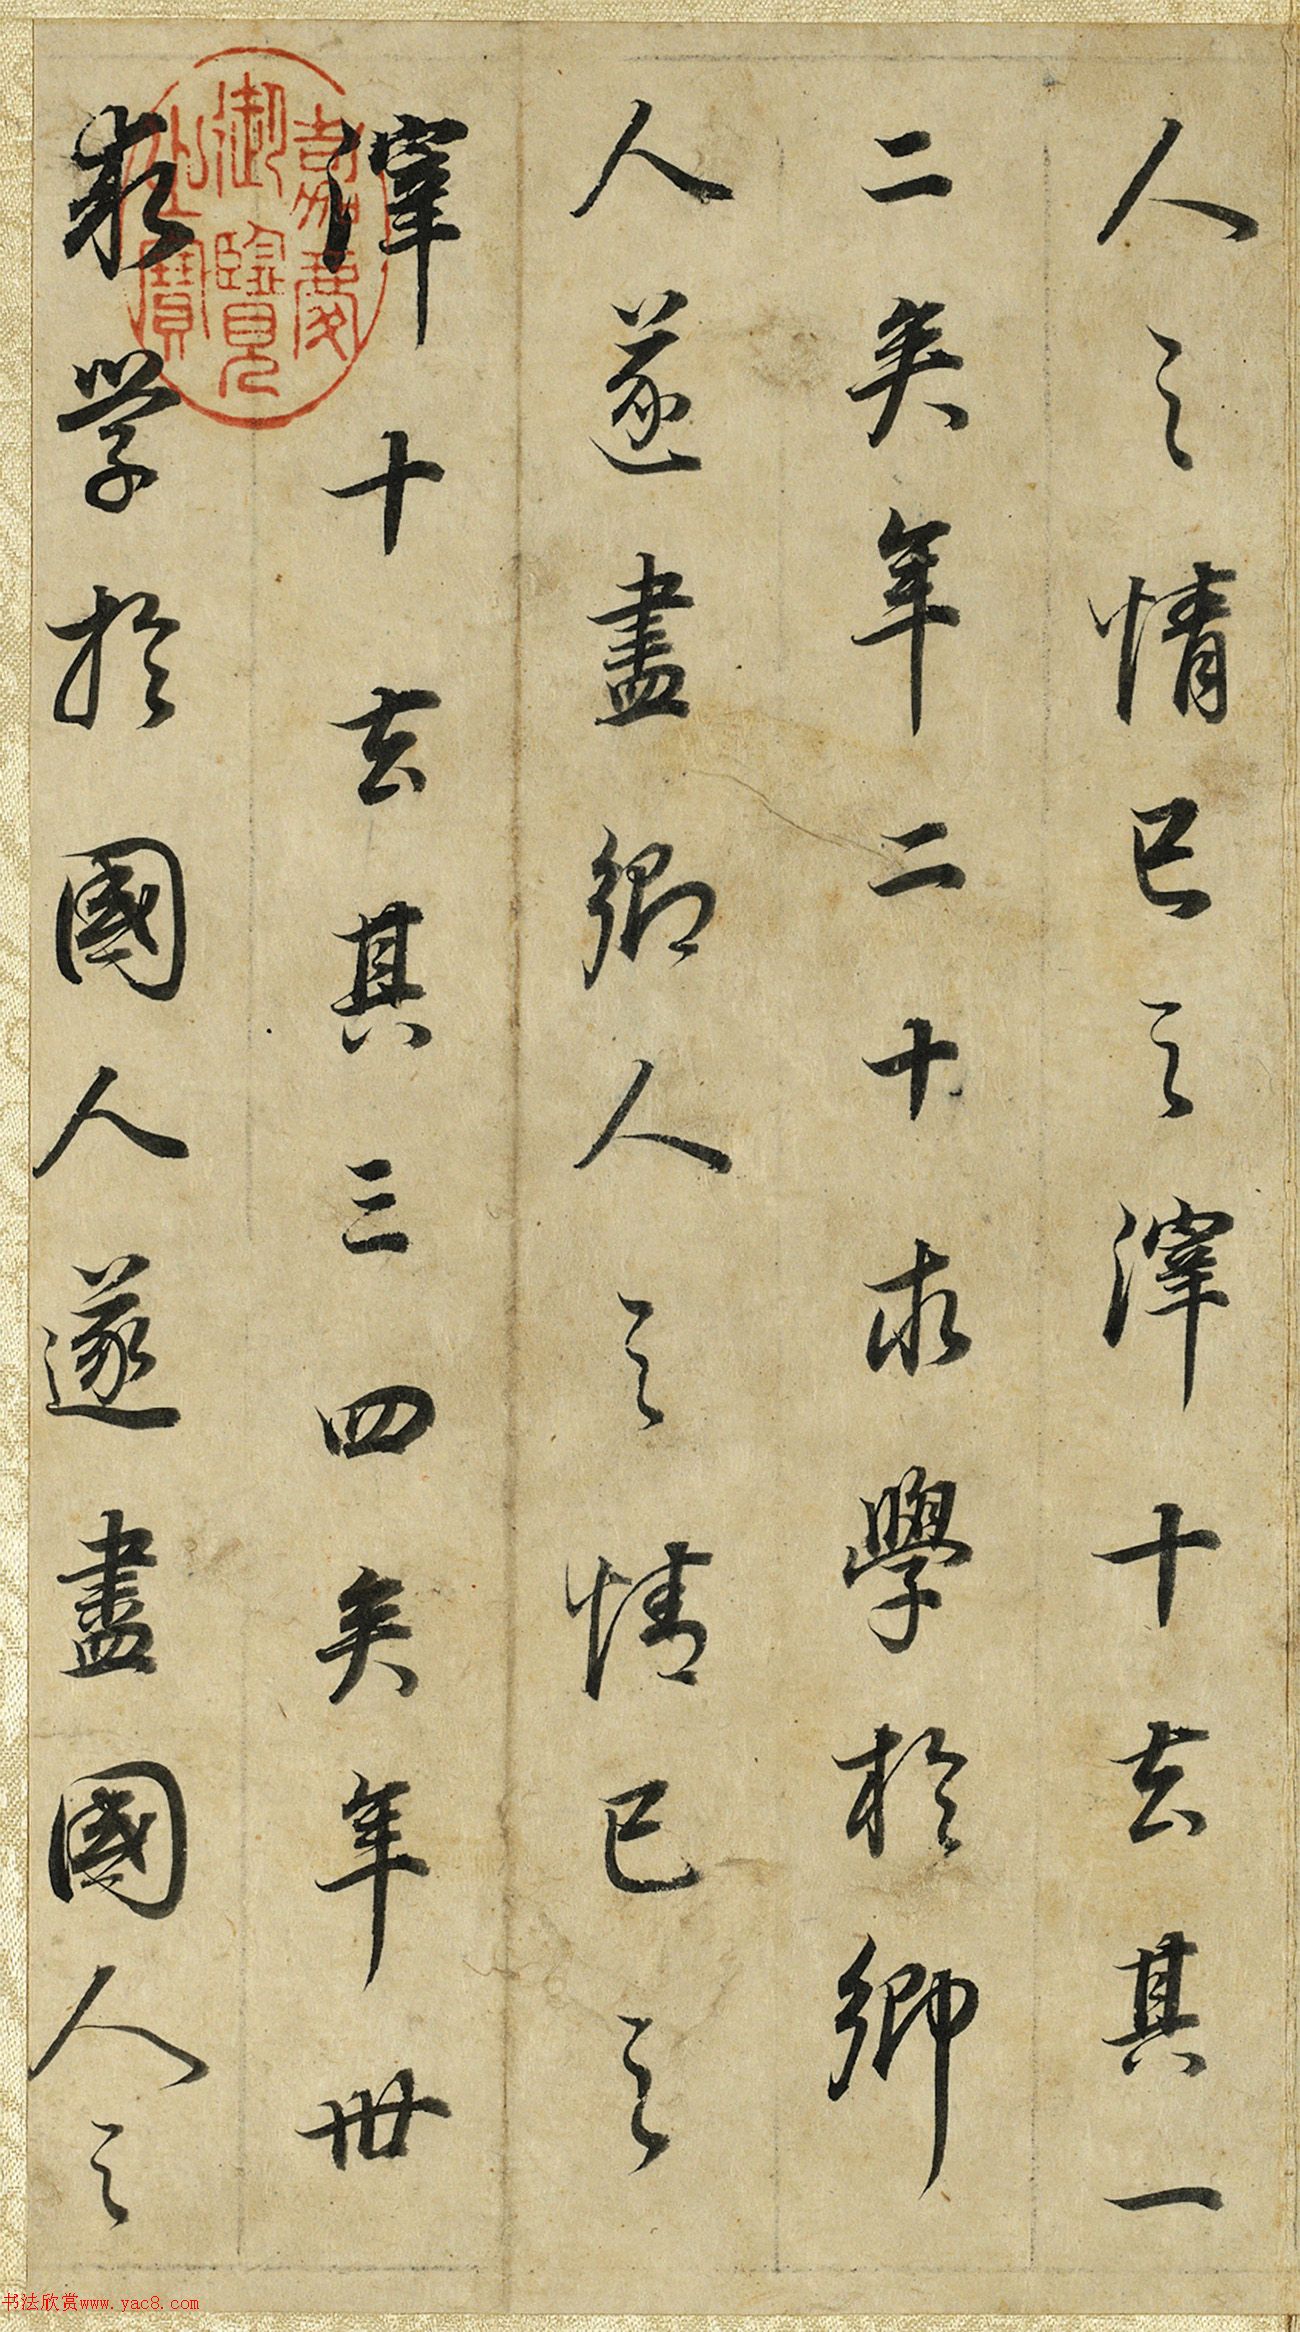 人之情已之滓十去其一
二矣年二十求學於鄉
人遂盡鄉人之情已之
滓十去其三四矣年卅
求学於國人遂盡國人之
嘉慶御覽之寶
书法欣赏www.yac8.com